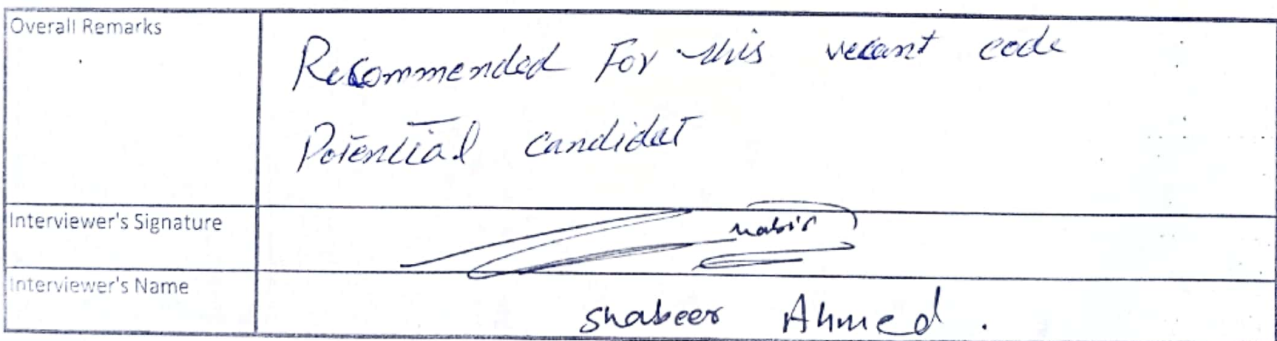 Overall Remarks
Recommended For this vecant code
Potential candidat
Interviewer's Signature
Interviewer's Name
Shabeer Ahmed.